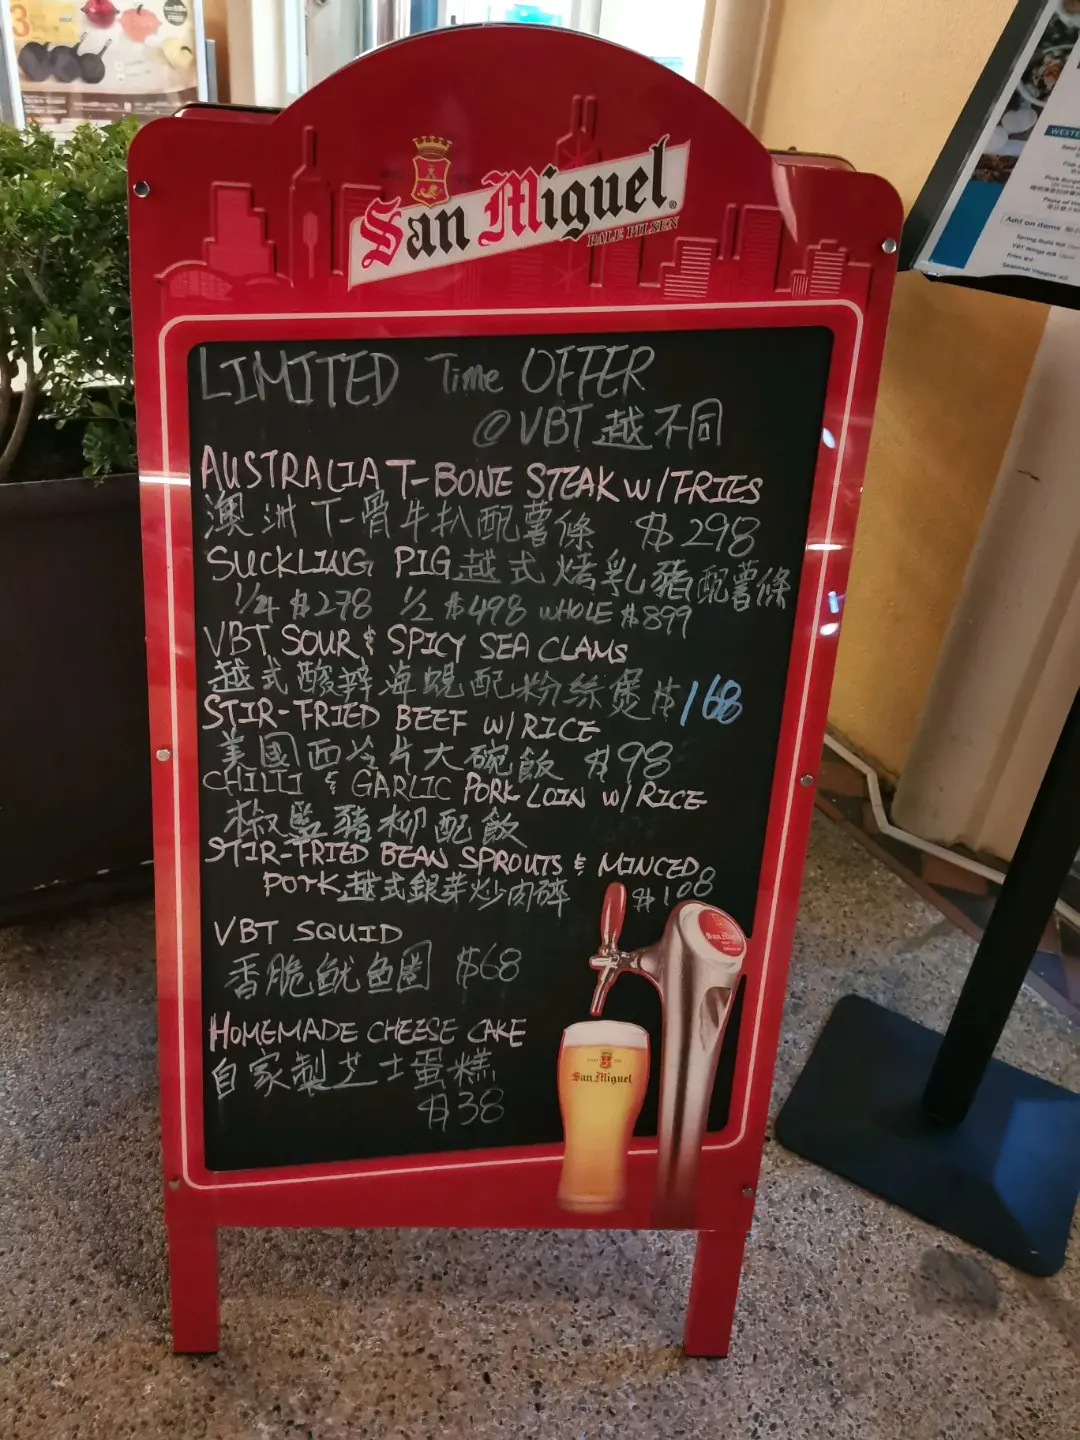 San Miguel
PALE PILSEN
LIMITED Time OFFER
@VBT 越不同
AUSTRALIA T-BONE STEAK W/FRIES
澳洲T-骨牛扒配薯條 $298
SUCKLING PIG 越式烤乳豬配薯條
1/4 $278 1/2 $498 WHOLE $899
VBT SOUR & SPICY SEA CLAMS
越式酸辣海蜆配粉絲煲 $168
STIR-FRIED BEEF W/RICE
美國西冷片大碗飯 $98
CHILLI & GARLIC PORK LOIN W/RICE
椒鹽豬柳配飯
STIR-FRIED BEAN SPROUTS & MINCED
PORK 越式銀芽炒肉碎 $108
VBT SQUID
香脆魷鱼圈 $68
HOMEMADE CHEESE CAKE
自家製芝士蛋糕
$38
San Miguel
San Miguel
Add on items